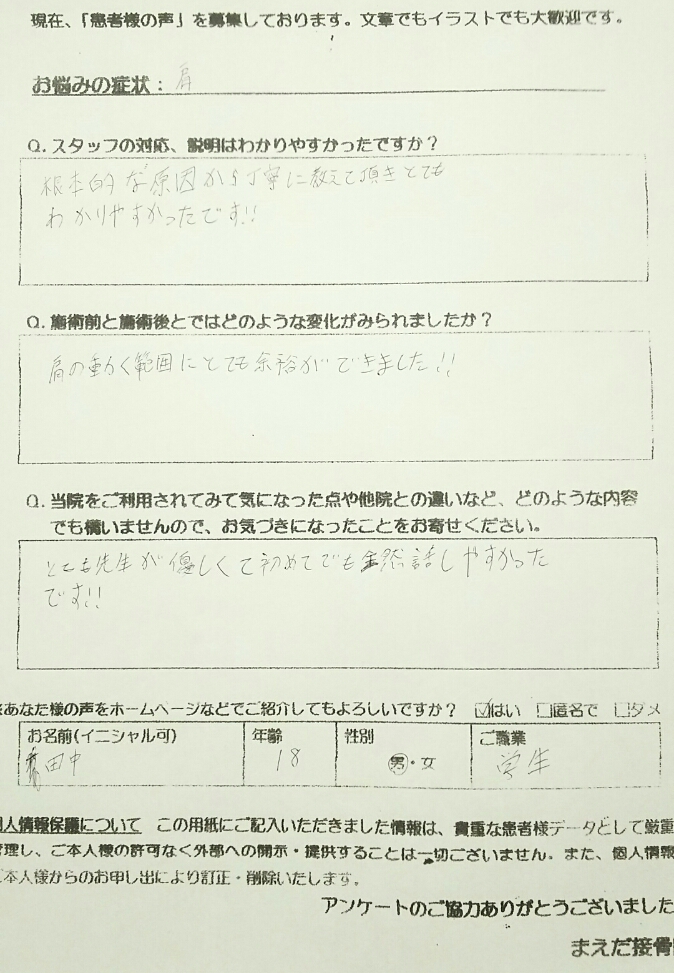 現在、「患者様の声」を募集しております。文章でもイラストでも大歓迎です。
お悩みの症状： 肩
Q. スタッフの対応、説明はわかりやすかったですか？
根本的な原因から丁寧に教えて頂きとても
わかりやすかったです!!
Q. 施術前と施術後とではどのような変化がみられましたか？
肩の動く範囲にとても余裕ができました!!
Q. 当院をご利用されてみて気になった点や他院との違いなど、どのような内容
でも構いませんので、お気づきになったことをお寄せください。
とても先生が優しくて初めてでも全然話しやすかった
です!!
あなた様の声をホームページなどでご紹介してもよろしいですか？ ☑はい □匿名で □ダメ
お名前(イニシャル可) 年齢 性別 ご職業
田中 18 男・女 学生
人情報保護について この用紙にご記入いただきました情報は、貴重な患者様データとして厳重
管理し、ご本人様の許可なく外部への開示・提供することは一切ございません。また、個人情報
ご本人様からのお申し出により訂正・削除いたします。
アンケートのご協力ありがとうございました
まえだ接骨